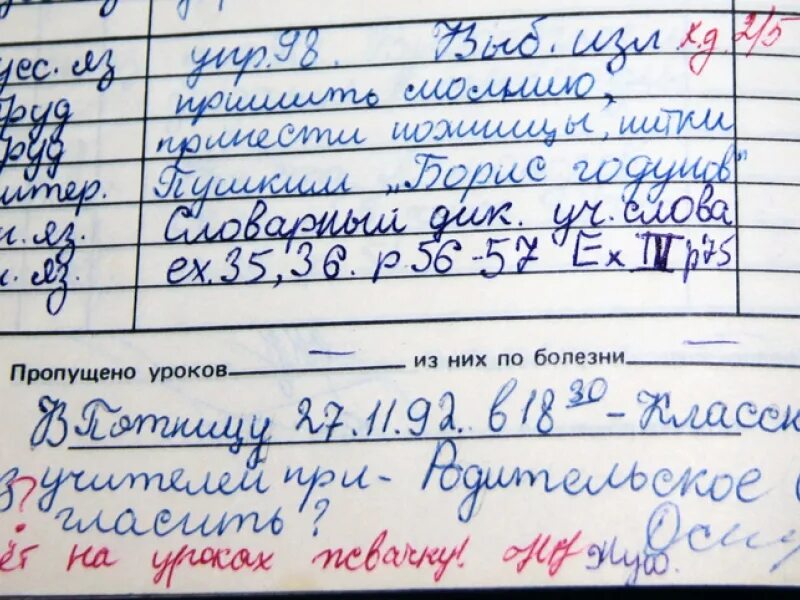 рус. яз упр. 98. Выб. изл х.д. 2/5
труд пришить молнию,
труд принести ножницы, нитки
литер. Пушкин „Борис годунов"
и. яз. Словарный дик. уч. слова
и. яз. ex. 35, 36. p. 56-57 Ex III p 75
Пропущено уроков — из них по болезни —
В Пятницу 27.11.92. в 18 30 - Классн
из учителей при- Родительское
? гласить?
ёт на уроках жвачку!